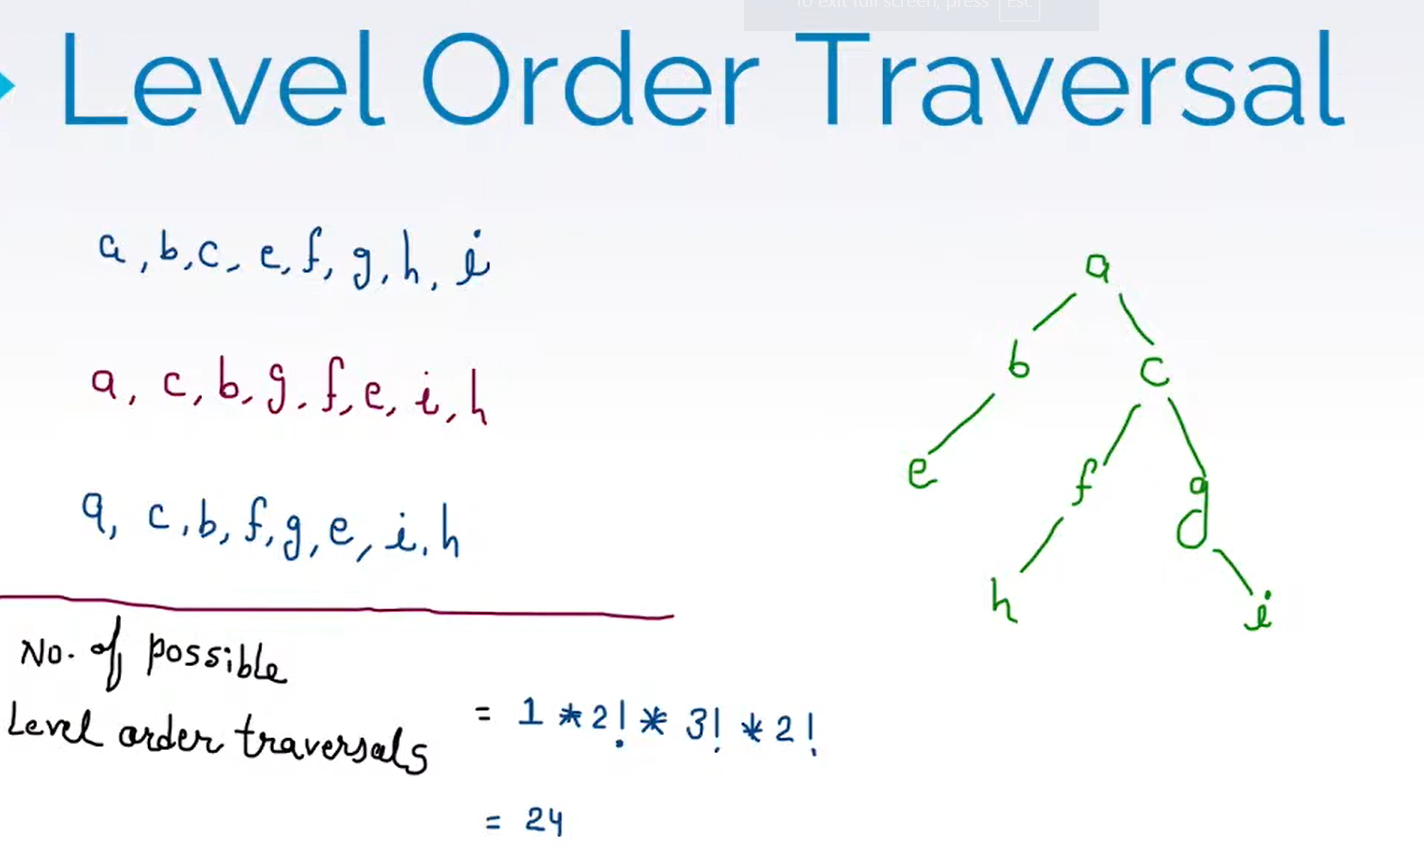 to exit full screen, press Esc
Level Order Traversal
a, b, c, e, f, g, h, i
a, c, b, g, f, e, i, h
a, c, b, f, g, e, i, h
a
b c
e f g
h i
No. of possible
Level order traversals = 1 * 2! * 3! * 2!
= 24